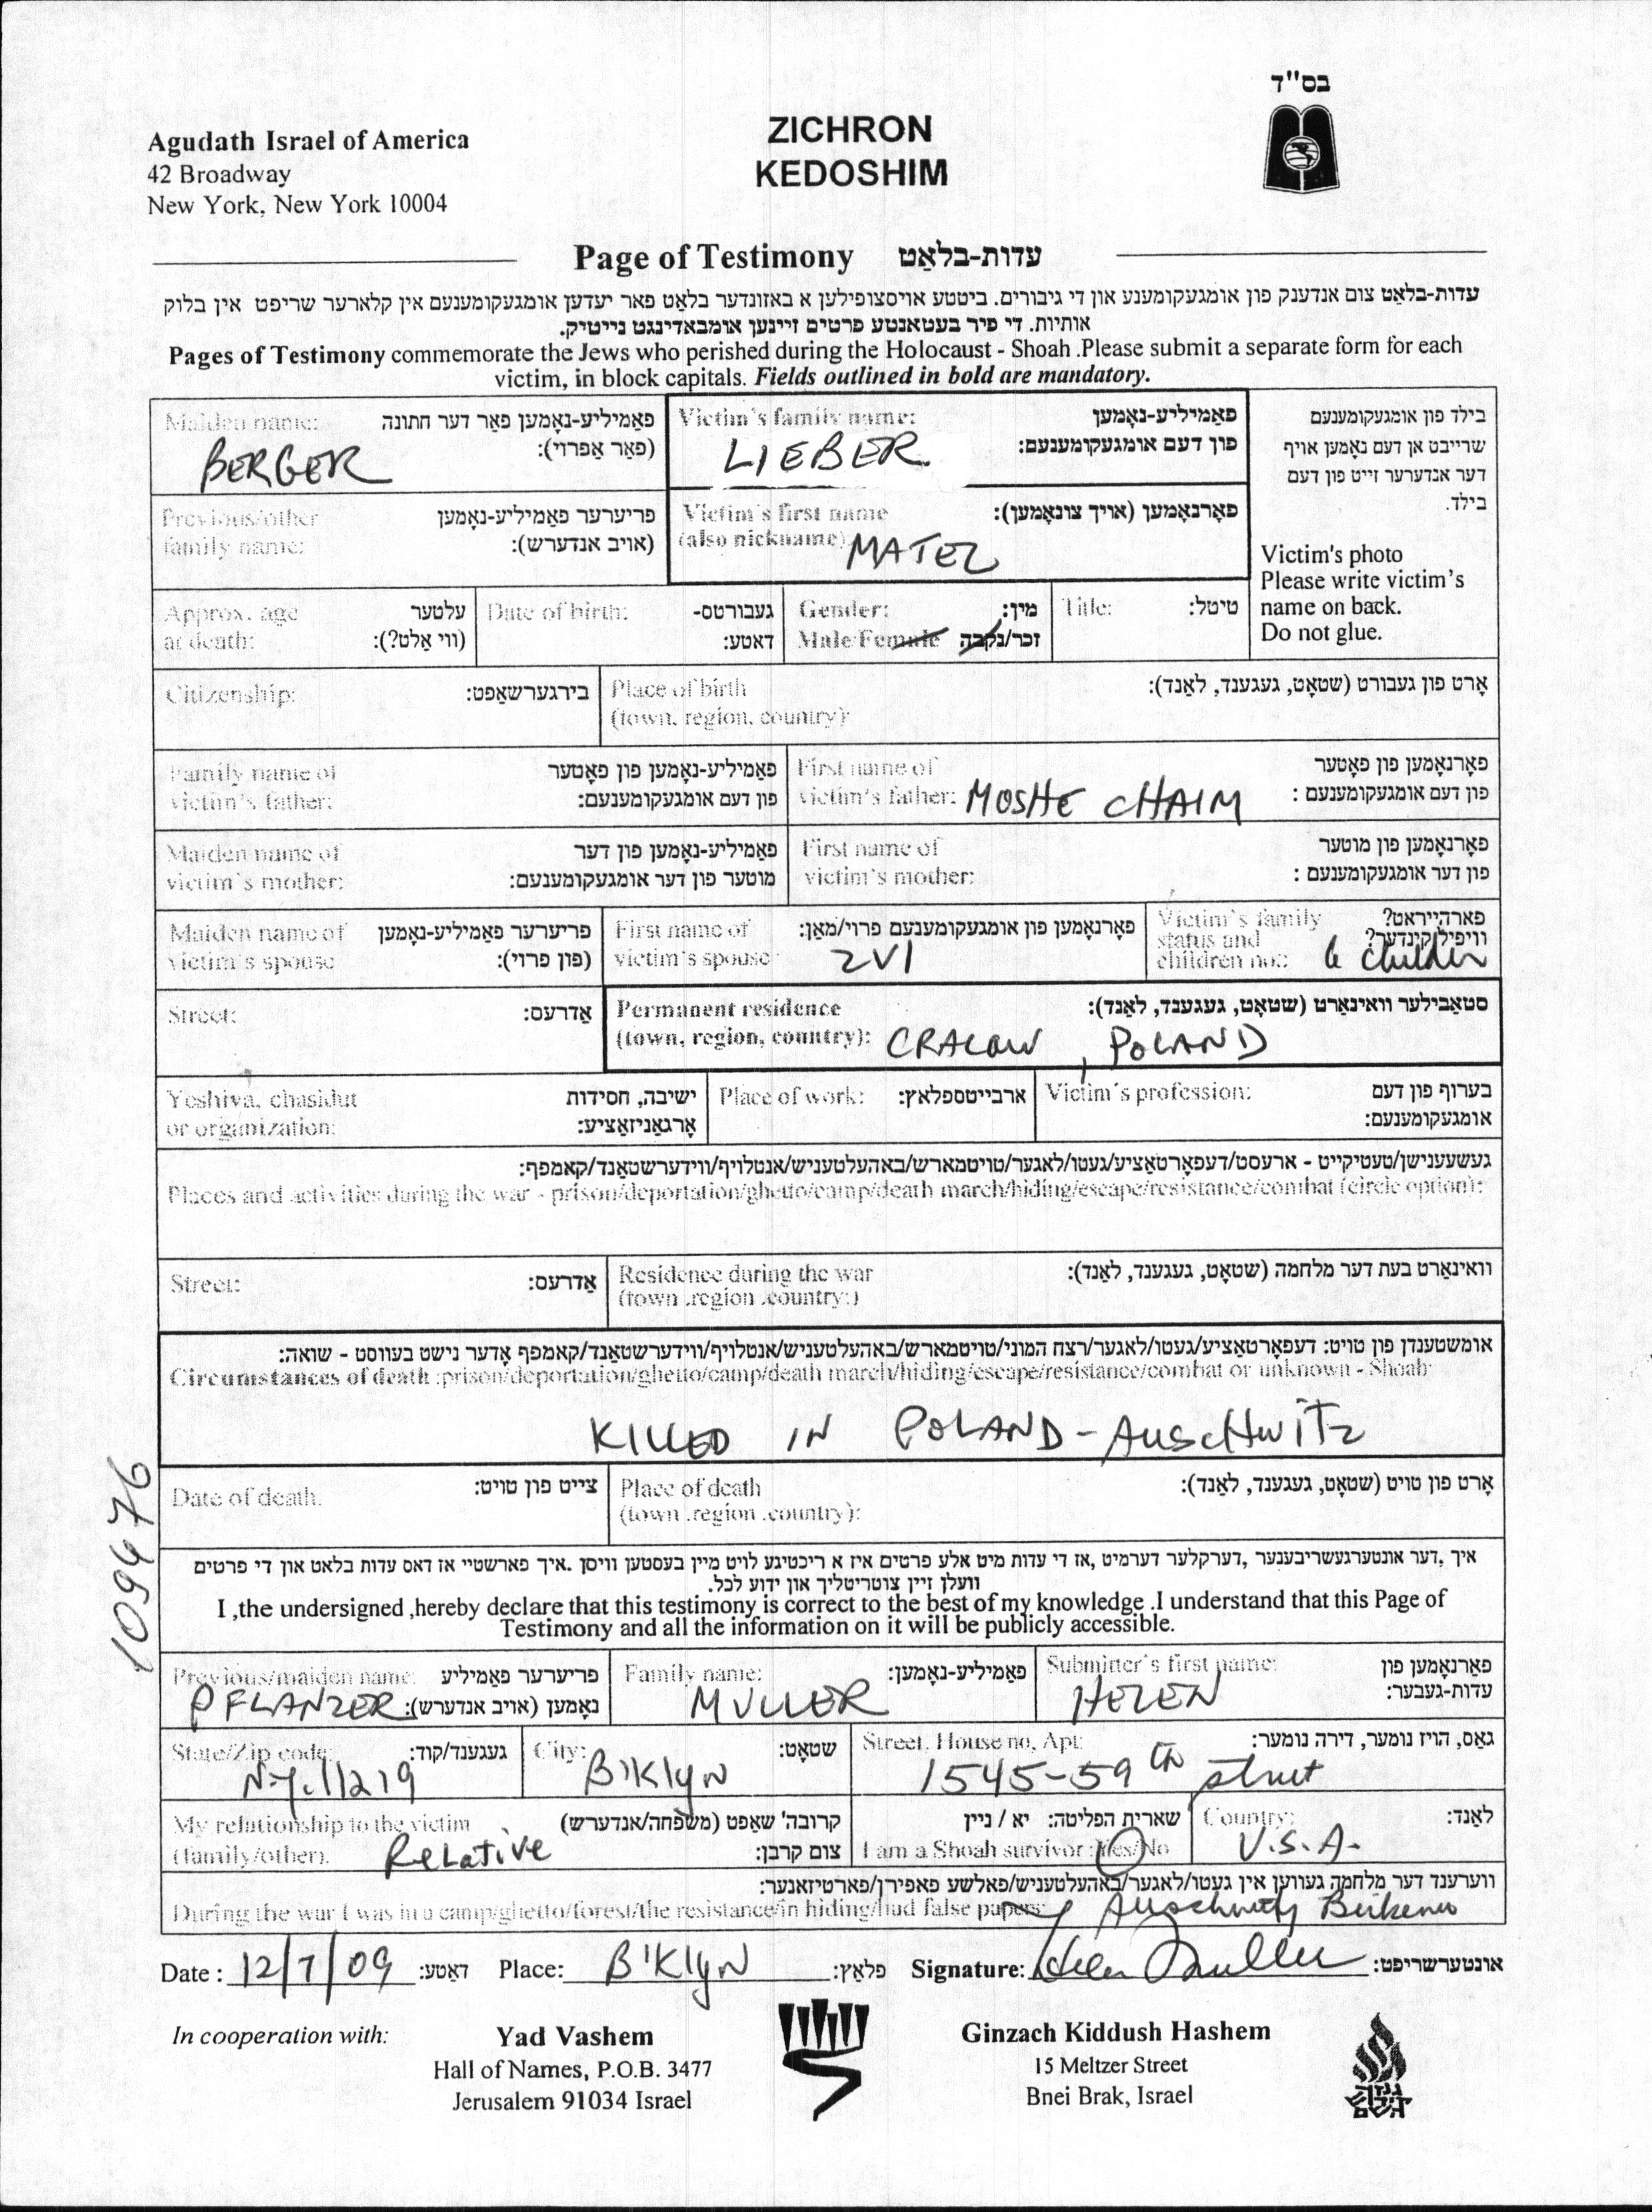 בס"ד
Agudath Israel of America
42 Broadway
New York, New York 10004
ZICHRON
KEDOSHIM
Page of Testimony עדות-בלאַט
עדות-בלאַט צום אנדענק פון אומגעקומענע און די גיבורים. ביטע אויסצופילען א באזונדער בלאַט פאר יעדען אומגעקומענעם אין קלארער שריפט אין בלוק
אותיות. די פיר בעטאנטע פרטים זיינען אומבאדינגט נייטיק.
Pages of Testimony commemorate the Jews who perished during the Holocaust - Shoah .Please submit a separate form for each
victim, in block capitals. Fields outlined in bold are mandatory.
Maiden name: פאַמיליע-נאָמען פאַר דער חתונה
(פאַר אַפרוי):
BERGER
Victim's family name: פאַמיליע-נאָמען
פון דעם אומגעקומענעם:
LIEBER
בילד פון אומגעקומענעם
שרייבט אן דעם נאָמען אויף
דער אנדערער זייט פון דעם
בילד.
Victim's photo
Please write victim's
name on back.
Do not glue.
Previous/other פריערער פאַמיליע-נאָמען
family name: (אויב אנדערש):
Victim's first name פאָרנאָמען (אויך צונאָמען):
(also nickname) MATEL
Approx. age עלטער
at death: (ווי אַלט?):
Date of birth: געבורטס-
דאַטע:
Gender: מין:
Male/Female זכר/נקבה
Title: טיטל:
Citizenship: בירגערשאַפט:
Place of birth אָרט פון געבורט (שטאָט, געגענד, לאַנד):
(town, region, country):
Family name of פאַמיליע-נאָמען פון פאָטער
victim's father: פון דעם אומגעקומענעם:
First name of פאָרנאָמען פון פאָטער
victim's father: MOSHE CHAIM פון דעם אומגעקומענעם :
Maiden name of פאַמיליע-נאָמען פון דער
victim's mother: מוטער פון דער אומגעקומענעם:
First name of פאָרנאָמען פון מוטער
victim's mother: פון דער אומגעקומענעם :
Maiden name of פריערער פאַמיליע-נאָמען
victim's spouse (פון פרוי):
First name of פאָרנאָמען פון אומגעקומענעם פרוי/מאַן:
victim's spouse ZVI
Victim's family פארהייראט?
status and וויפיל קינדער?
children no.: 6 children
Street: אַדרעס:
Permanent residence סטאַבילער וואינאָרט (שטאָט, געגענד, לאַנד):
(town, region, country): CRACOW, POLAND
Yeshiva, chasidut ישיבה, חסידות
or organization: אָרגאַניזאַציע:
Place of work: ארבייטספלאץ:
Victim's profession: בערוף פון דעם
אומגעקומענעם:
געשעענישן/טעטיקייט - ארעסט/דעפּאָרטאַציע/געטו/לאגער/טויטמארש/באהעלטעניש/אנטלויף/ווידערשטאַנד/קאמפף:
Places and activities during the war - prison/deportation/ghetto/camp/death march/hiding/escape/resistance/combat (circle option):
Street: אַדרעס:
Residence during the war וואינאָרט בעת דער מלחמה (שטאָט, געגענד, לאַנד):
(town .region .country:)
אומשטענדן פון טויט: דעפּאָרטאַציע/געטו/לאגער/רצח המוני/טויטמארש/באהעלטעניש/אנטלויף/ווידערשטאַנד/קאמפף אָדער נישט בעווסט - שואה:
Circumstances of death :prison/deportation/ghetto/camp/death march/hiding/escape/resistance/combat or unknown - Shoah:
KILLED IN POLAND - AUSCHWITZ
Date of death: צייט פון טויט:
Place of death אָרט פון טויט (שטאָט, געגענד, לאַנד):
(town .region .country):
איך ,דער אונטערגעשריבענער ,דערקלער דערמיט ,אז די עדות מיט אלע פרטים איז א ריכטיגע לויט מיין בעסטען וויסן .איך פארשטיי אז דאס עדות בלאט און די פרטים
וועלן זיין צוטריטליך און ידוע לכל.
I ,the undersigned ,hereby declare that this testimony is correct to the best of my knowledge .I understand that this Page of
Testimony and all the information on it will be publicly accessible.
Previous/maiden name: פריערער פאַמיליע
PFLANZER נאָמען (אויב אנדערש):
Family name: פאַמיליע-נאָמען:
MULLER
Submitter's first name: פאָרנאָמען פון
עדות-געבער:
HELEN
State/Zip code: געגענד/קוד:
N.Y. 11219
City: שטאָט:
B'Klyn
Street, House no, Apt: גאַס, הויז נומער, דירה נומער:
1545-59th street
My relationship to the victim קרובה' שאַפט (משפּחה/אנדערש)
(family/other). Relative צום קרבן:
שארית הפליטה: יא / ניין
I am a Shoah survivor :Yes/No
Country: לאַנד:
U.S.A.
ווערענד דער מלחמה געווען אין געטו/לאגער/באַהעלטעניש/פאלשע פּאפּירן/פארטיזאנער:
During the war I was in a camp/ghetto/forest/the resistance/in hiding/had false papers: Auschwitz Birkenau
Date : 12/7/09 דאַטע: Place: B'Klyn פלאַץ: Signature: Helen Muller אונטערשריפט:
109476
In cooperation with:
Yad Vashem
Hall of Names, P.O.B. 3477
Jerusalem 91034 Israel
Ginzach Kiddush Hashem
15 Meltzer Street
Bnei Brak, Israel
גנזך
קידוש
השם